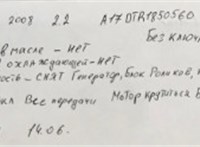 2008 2.2 A17DTR1850560
Без ключ
в масле - НЕТ
охлаждающей - НЕТ
ность - СНЯТ Генератор, Блок Роликов,
Все передачи Мотор крутиться
14.06.